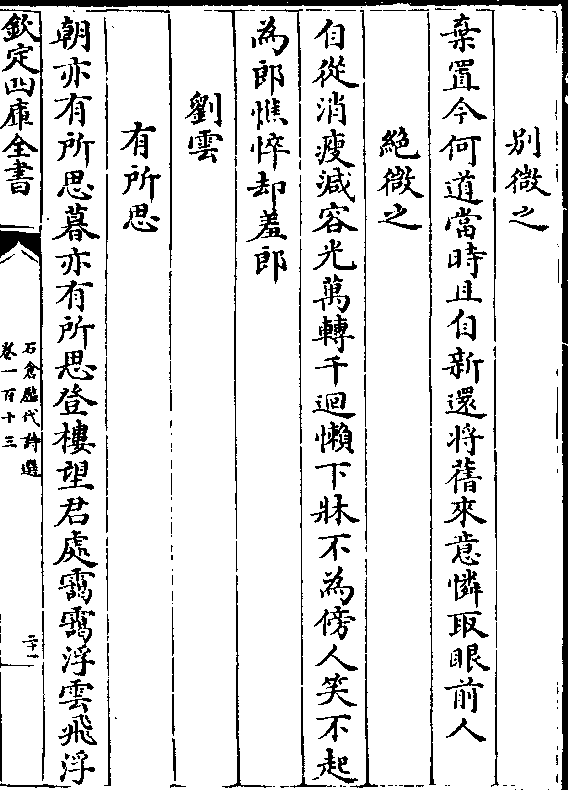 别微之
棄置今何道當時且自新還将舊來意憐取眼前人
絶微之
自從消瘦減容光萬轉千迴懶下牀不為傍人笑不起
為郎憔悴却羞郎
劉雲
有所思
朝亦有所思暮亦有所思登樓望君處靄靄浮雲飛浮
欽定四庫全書
石倉歷代詩選
卷一百十三
二十一